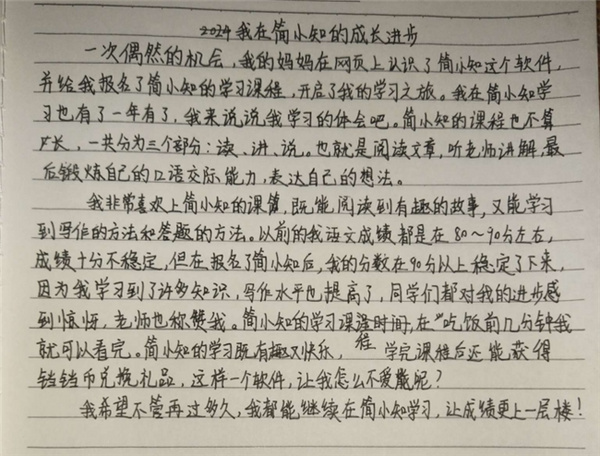 2024我在简小知的成长进步
一次偶然的机会，我的妈妈在网页上认识了简小知这个软件，
并给我报名了简小知的学习课程，开启了我的学习之旅。我在简小知学
习也有了一年有了，我来说说我学习的体会吧。简小知的课程也不算
长，一共分为三个部分：读、讲、说。也就是阅读文章，听老师讲解，最
后锻炼自己的口语交际能力，表达自己的想法。
我非常喜欢上简小知的课，既能阅读到有趣的故事，又能学习
到写作的方法和答题的方法。以前的我语文成绩都是在80～90分左右，
成绩十分不稳定，但在报名了简小知后，我的分数在90分以上稳定了下来，
因为我学习到了许多知识，写作水平也提高了，同学们都对我的进步感
到惊讶，老师也称赞我。简小知的学习课程时间，在"吃饭前几分钟我
就可以看完。简小知的学习既有趣又快乐，程 学完课程后还能获得
铛铛币兑换礼品，这样一个软件，让我怎么不爱呢？
我希望不管再过多久，我都能继续在简小知学习，让成绩更上一层楼！